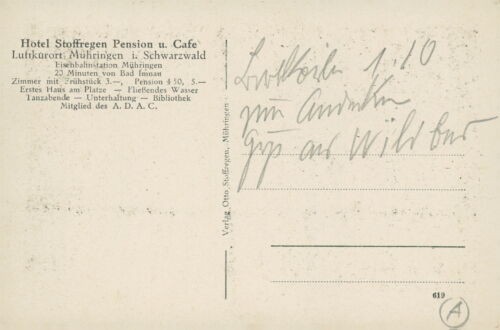 Hotel Stoffregen Pension u. Cafe
Luftkurort Mühringen i. Schwarzwald
Eisenbahnstation Mühringen
20 Minuten von Bad Imnau
Zimmer mit Frühstück 3.—, Pension 4.50, 5.—
Erstes Haus am Platze — Fließendes Wasser
Tanzabende — Unterhaltung — Bibliothek
Mitglied des A. D. A. C.
Verlag Otto Stoffregen, Mühringen.
1.10
zum Andenken
aus Wildbad
619
A